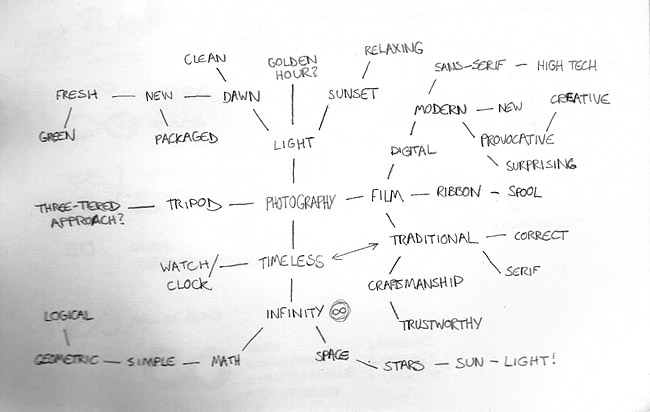 RELAXING
CLEAN
GOLDEN
HOUR?
SANS-SERIF — HIGH TECH
FRESH — NEW — DAWN
SUNSET
MODERN — NEW
CREATIVE
GREEN
PACKAGED
LIGHT
DIGITAL
PROVOCATIVE
SURPRISING
THREE-TIERED
APPROACH?
TRIPOD — PHOTOGRAPHY — FILM — RIBBON – SPOOL
WATCH/
CLOCK
TIMELESS
TRADITIONAL — CORRECT
SERIF
CRAFTSMANSHIP
TRUSTWORTHY
INFINITY ∞
LOGICAL
GEOMETRIC — SIMPLE — MATH
SPACE
STARS — SUN – LIGHT!